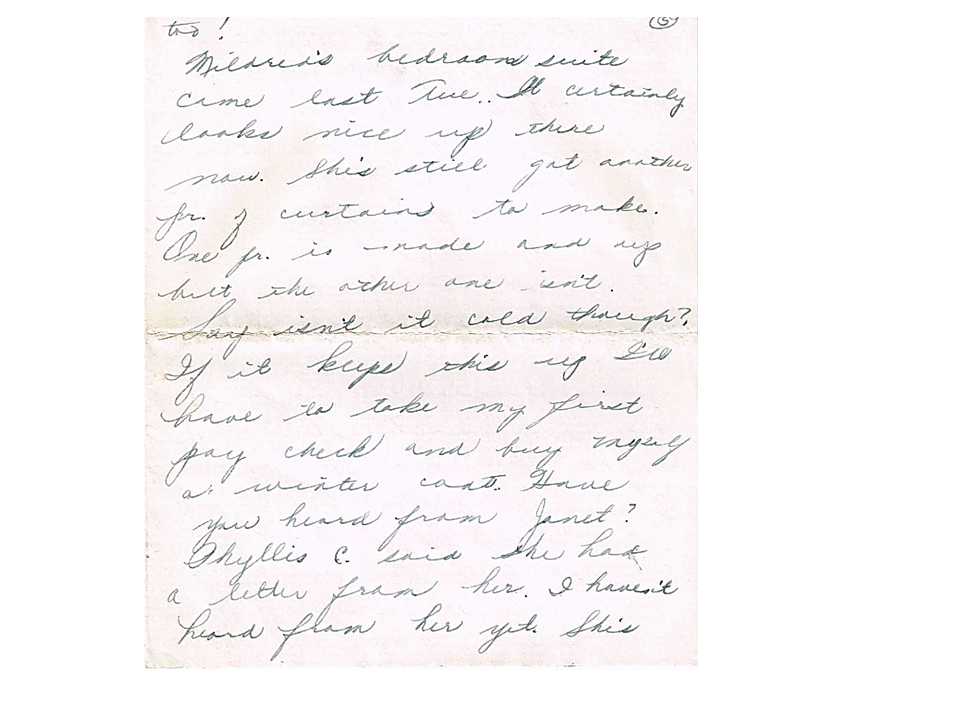 too! (5)
Mildred's bedroom suite
came last Tue.. It certainly
looks nice up there
now. She's still got another
pr. of curtains to make.
One pr. is made and up
but the other one isn't.
Say isn't it cold though?
If it keeps this up I'll
have to take my first
pay check and buy myself
a winter coat. Have
you heard from Janet?
Phyllis C. said she had
a letter from her. I haven't
heard from her yet. She's